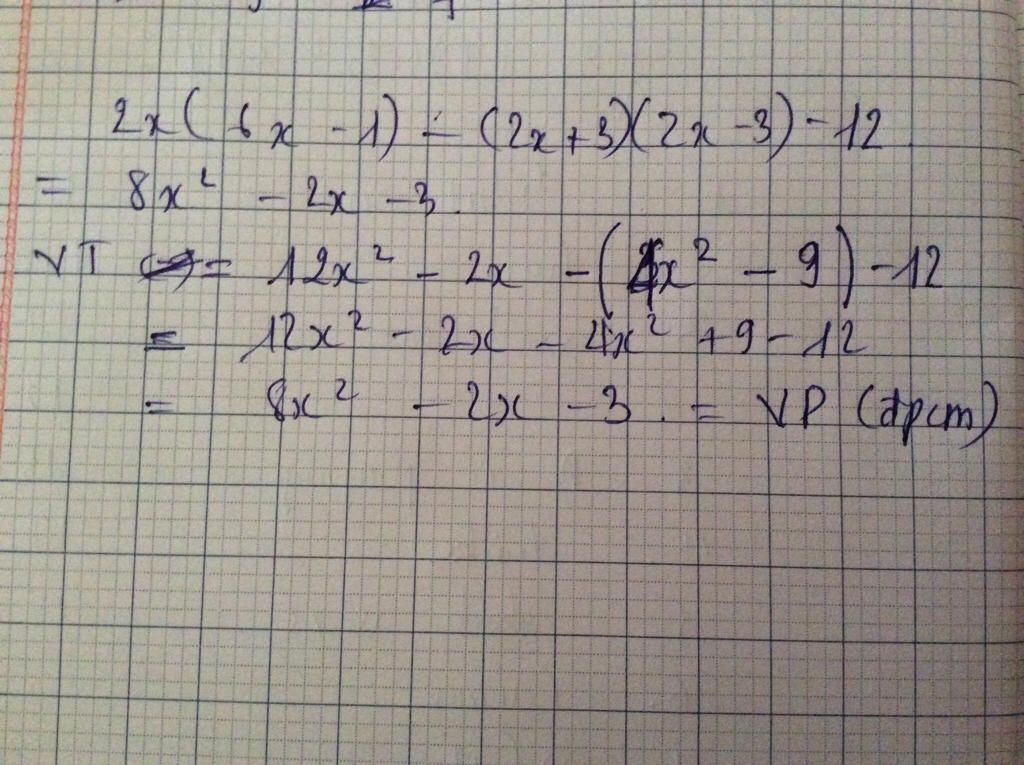 2x(6x - 1) - (2x+3)(2x-3) - 12
= 8x² - 2x - 3.
VT = 12x² - 2x - (4x² - 9) - 12
= 12x² - 2x - 4x² + 9 - 12
= 8x² - 2x - 3. = VP (đpcm)